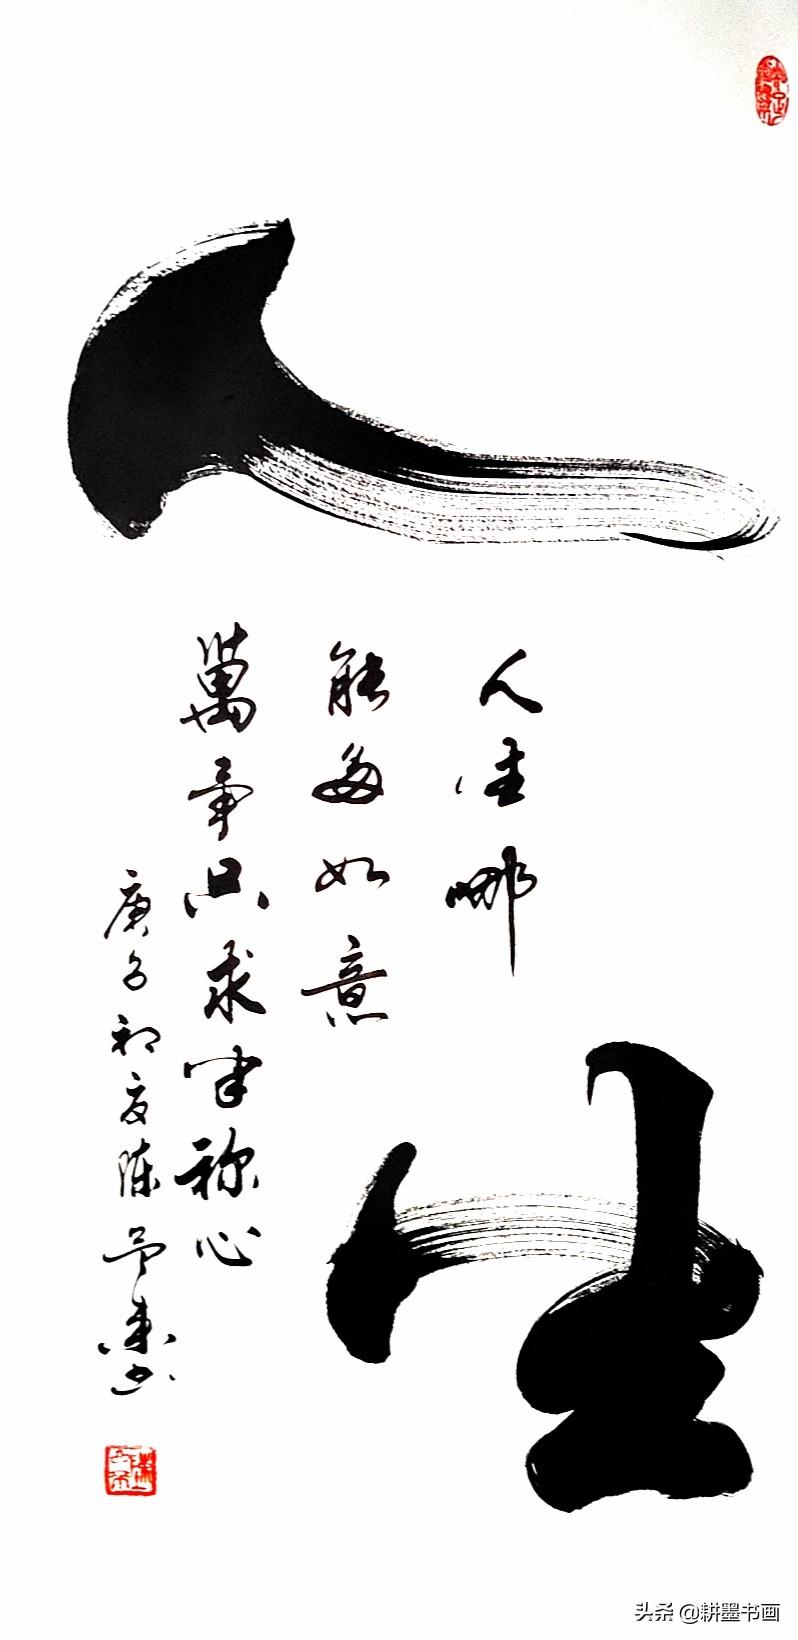 人生
人生哪
能多如意
萬事只求半称心
庚子初夏陈书
头条 @耕墨书画